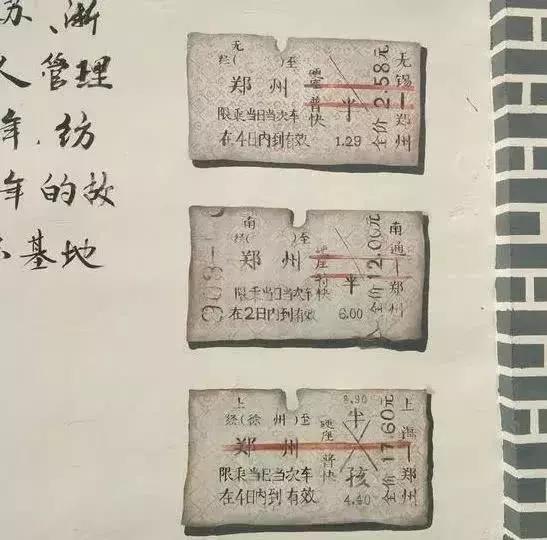 苏、浙
管理
年，纺
年的故
基地
无
经( )至
郑 州
硬座
普快
半
限乘当日当次车
在4日内到有效
1.29
全价2.58元
无锡—郑州
南
经( )至
郑 州
硬座
特快
半
限乘当日当次车
在2日内到有效
6.00
全价12.00元
南通—郑州
上
经(徐 州)至
郑 州
硬座
普快
8.90
半
孩
限乘当日当次车
在4日内到有效
4.40
全价17.60元
上海—郑州